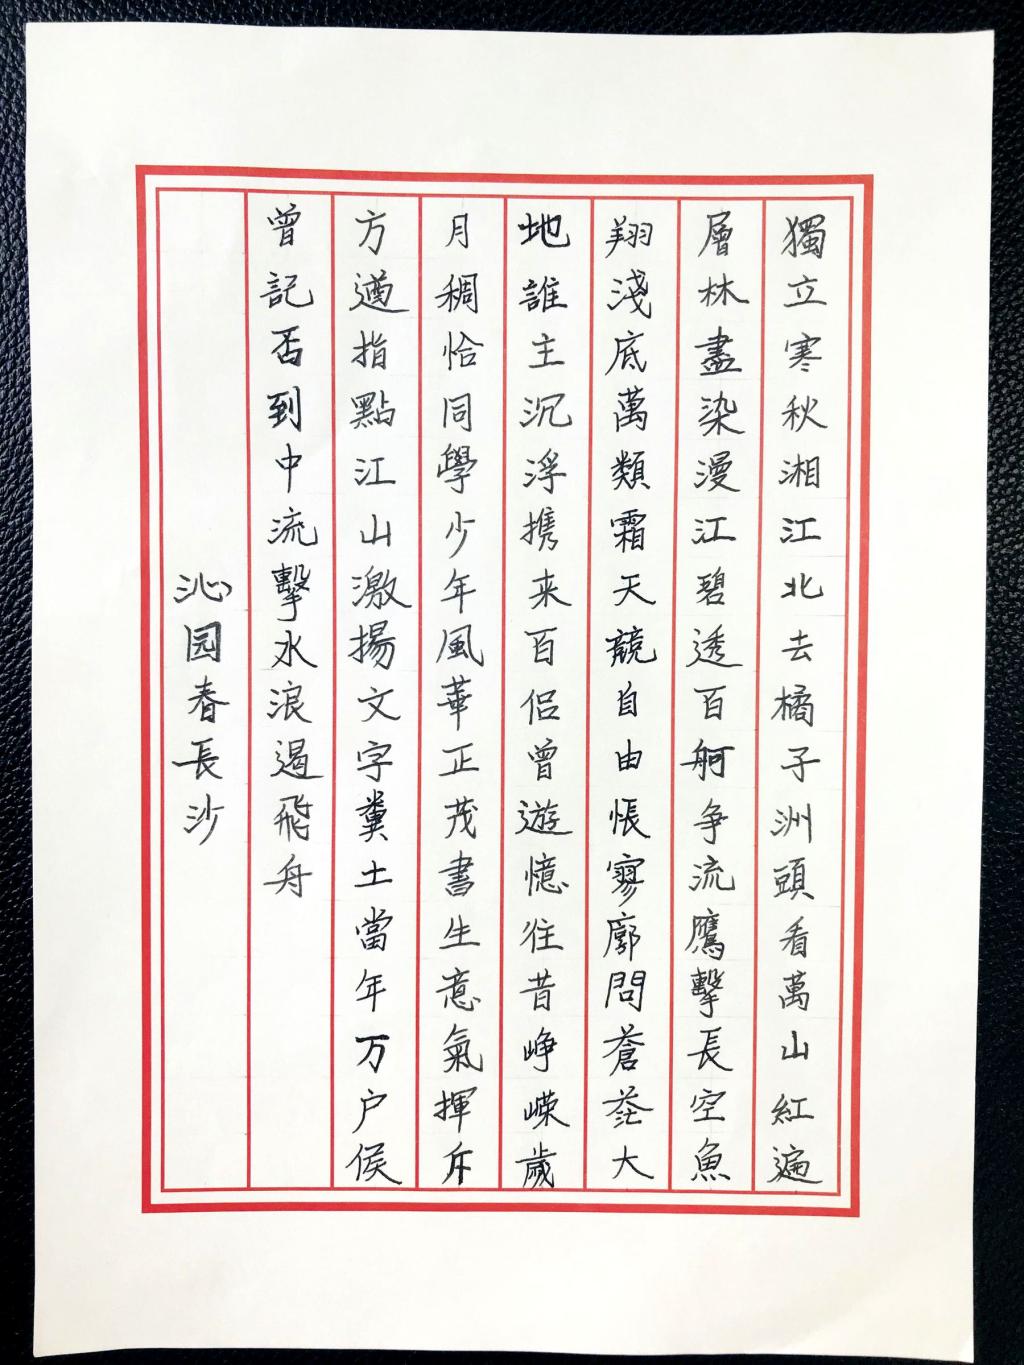 獨立寒秋湘江北去橘子洲頭看萬山紅遍
層林盡染漫江碧透百舸争流鷹擊長空魚
翔淺底萬類霜天競自由悵寥廓問蒼茫大
地誰主沉浮携来百侣曾遊憶往昔峥嵘歲
月稠恰同學少年風華正茂書生意氣揮斥
方遒指點江山激揚文字糞土當年万户侯
曾記否到中流擊水浪遏飛舟
沁园春長沙